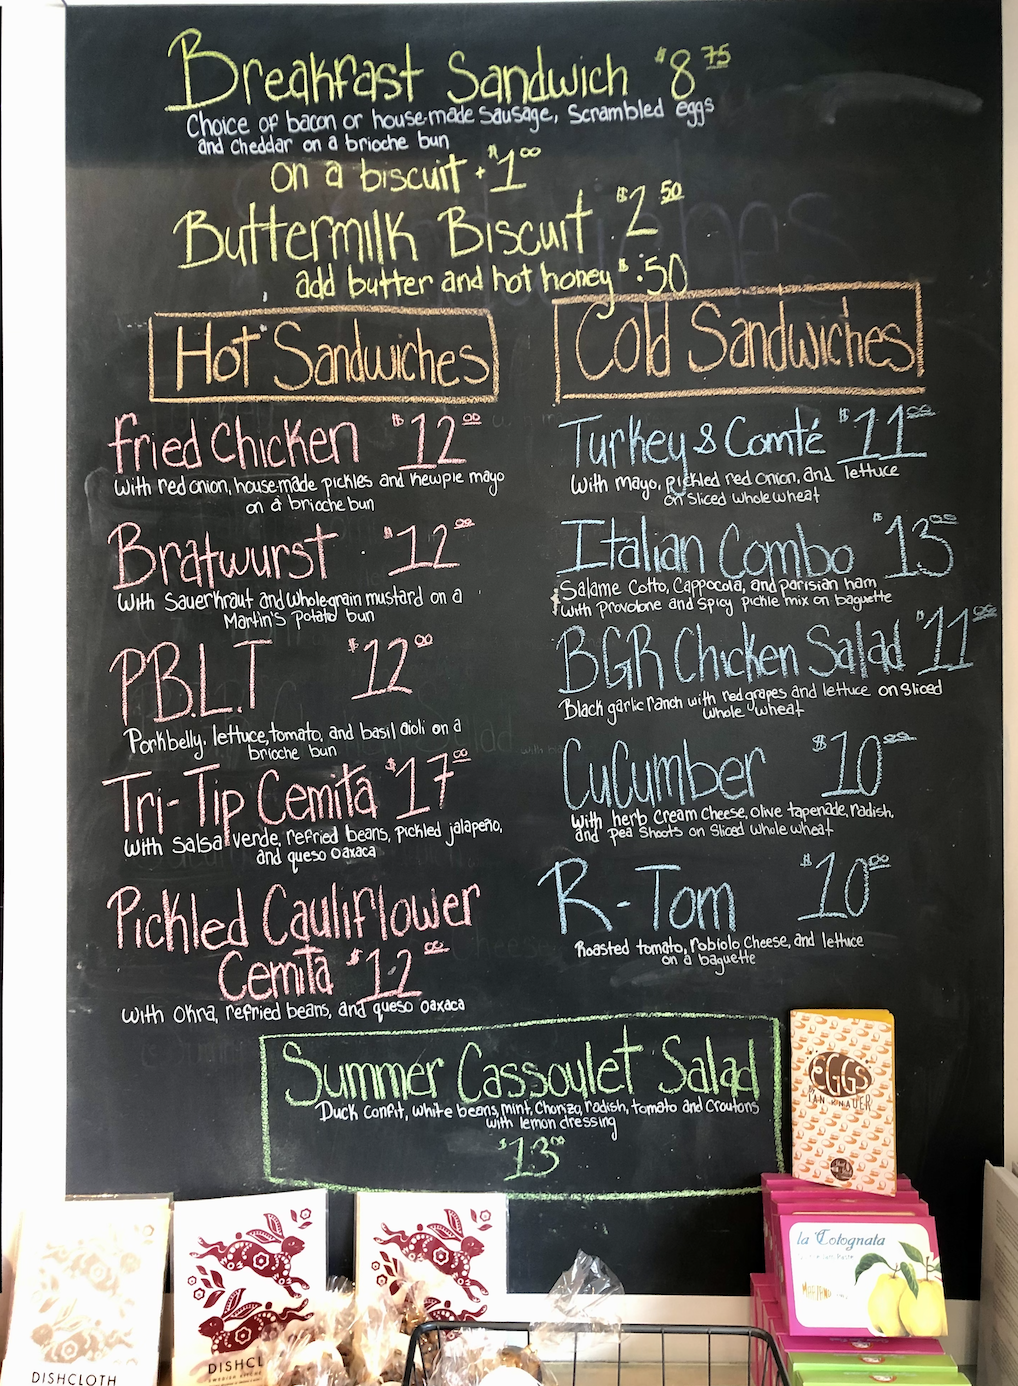 Breakfast Sandwich $8 75
Choice of bacon or house-made sausage, Scrambled eggs
and Cheddar on a brioche bun
on a biscuit + $1 00
Buttermilk Biscuit $2 50
add butter and hot honey $ .50
Hot Sandwiches
Fried Chicken $12 00
with red onion, house-made pickles and kewpie mayo
on a brioche bun
Bratwurst $12 00
with Sauerkraut and whole-grain mustard on a
Martin's Potato bun
P.B.L.T $12 00
Porkbelly, lettuce, tomato, and basil aioli on a
brioche bun
Tri-Tip Cemita $17 00
with Salsa verde, refried beans, pickled jalapeño,
and queso Oaxaca
Pickled Cauliflower
Cemita $12 00
with Okra, refried beans, and queso Oaxaca
Cold Sandwiches
Turkey & Comté $11 00
with mayo, pickled red onion, and lettuce
on Sliced whole wheat
Italian Combo $13 00
Salame Cotto, Cappocola, and parisian ham
with Provolone and Spicy pickle mix on baguette
BGR Chicken Salad $11 00
Black garlic ranch with red grapes and lettuce on Sliced
whole wheat
Cucumber $10 00
with herb cream cheese, olive tapenade, radish,
and pea shoots on Sliced whole wheat
R-Tom $10 00
Roasted tomato, robiolo cheese, and lettuce
on a baguette
Summer Cassoulet Salad
Duck confit, white beans, mint, Chorizo, radish, tomato and croutons
with lemon dressing
$13 00
EGGS
BY
IAN KNAUER
la Cotognata
DISHCLOTH
DISHCL